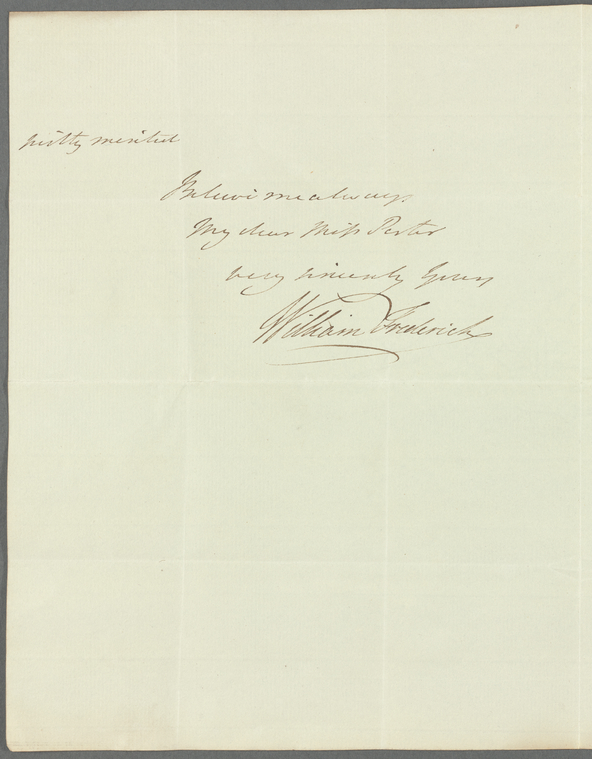 justly merited
Believe me always.
My dear Miss Porter
very sincerely Yours
William Frederick